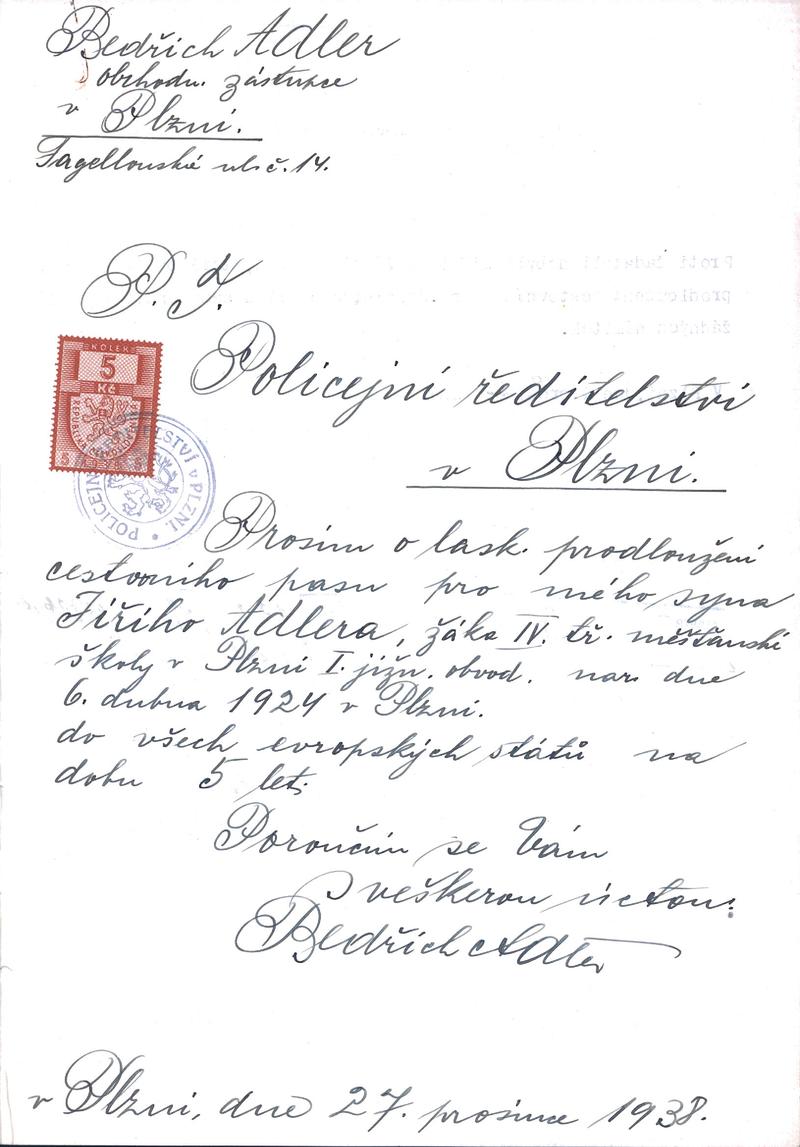 Bedřich Adler
obchodn. zástupce
v Plzni.
Jagellonská ul. č. 14.
P. T.
KOLEK
5
Kč
Policejní ředitelství
v Plzni.
POLICEJNÍ ŘEDITELSTVÍ V PLZNI
Prosím o lask. prodloužení
cestovního pasu pro mého syna
Jiřího Adlera, žáka IV. tř. měšťanské
školy v Plzni I. jižn. obvod. nar. dne
6. dubna 1924 v Plzni.
do všech evropských států na
dobu 5 let.
Poroučím se Vám
S veškerou úctou:
Bedřich Adler
v Plzni, dne 27. prosince 1938.